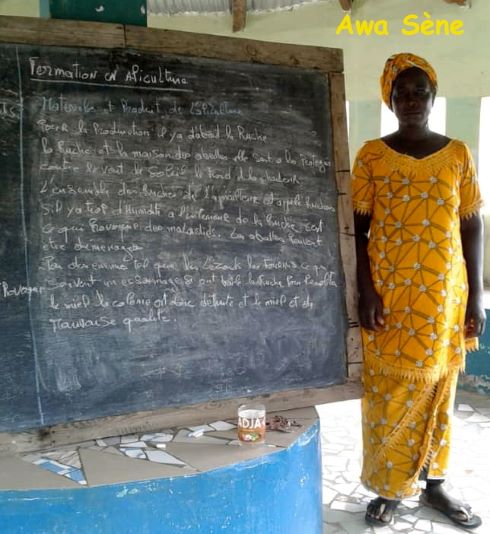 Awa Sène
Formation en Apiculture
Matérielle et Produit de l'apiculture
Pour la Production il y a d'abord la Ruche
la Ruche est la maison des abeilles elle sert a les Protéger
contre le vent le Soleil le froid et la chaleur
L'ensemble des Ruches de l'apiculteur est appelé Rucher
S'il y a trop d'Humidité a l'intérieur de la Ruche, c'est
ce qui Provoque des maladies. Les abeilles Peuvent
être déménager
tel que les Lézards les Fourmis ce qui
Provoque
Souvent un essaimage
le miel la colonie est donc détruite et le miel est de
mauvaise qualité.
ADJA